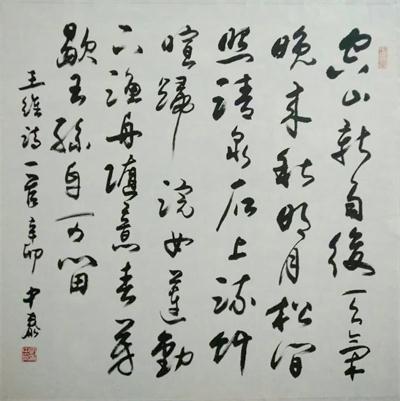 空山新雨後天氣
晚来秋明月松間
照清泉石上流竹
喧歸浣女蓮動
下漁舟隨意春芳
歇王孫自可留
王維詩一首辛卯中泰